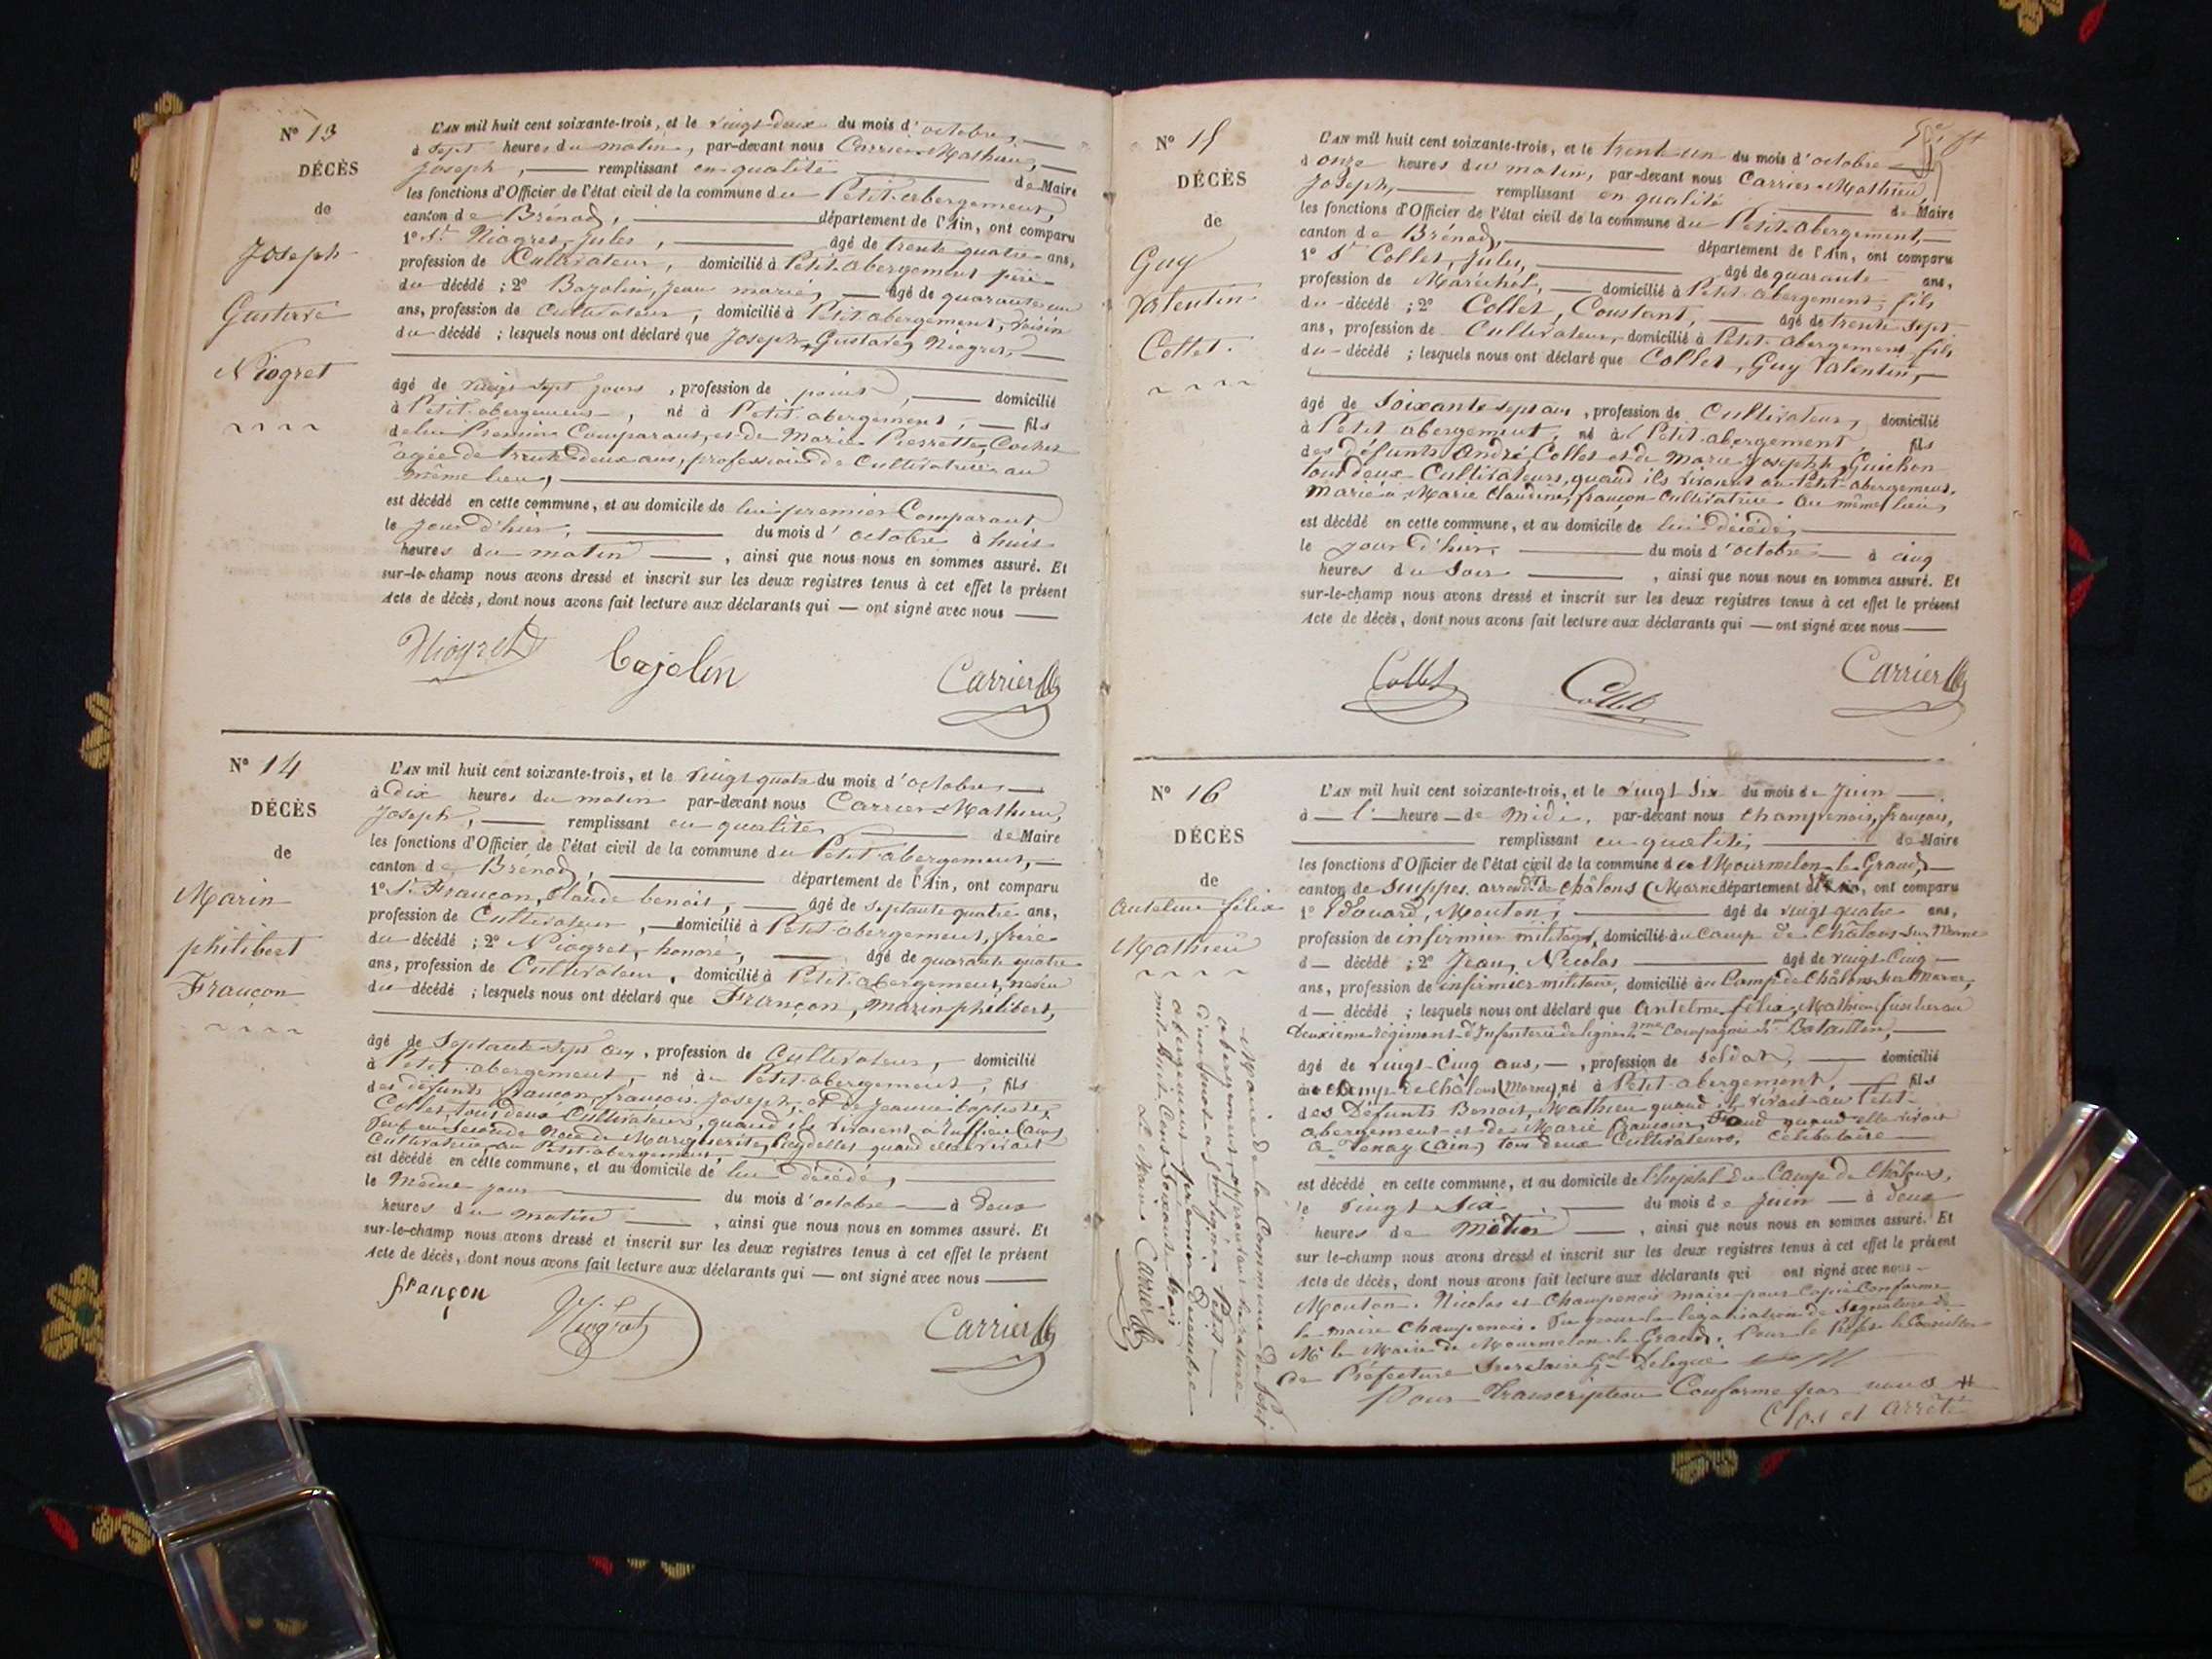 N° 13
DÉCÈS
de
Joseph
Gustave
Niogret
L'AN mil huit cent soixante-trois, et le vingt-deux du mois d'octobre
à sept heures du matin, par-devant nous Carrier Mathieu,
Joseph, remplissant en qualité de Maire
les fonctions d'Officier de l'état civil de la commune du Petit-abergement,
canton de Brénod, département de l'Ain, ont comparu
1° Sr Niogret, Jules, âgé de trente quatre ans,
profession de Cultivateur, domicilié à Petit-abergement père
du décédé ; 2° Bajolin, Jean marie, âgé de quarante un
ans, profession de Cultivateur, domicilié à Petit abergement, voisin
du décédé ; lesquels nous ont déclaré que Joseph, Gustave, Niogret,
âgé de vingt sept jours, profession de point, domicilié
à Petit-abergement, né à Petit-abergement, fils
de lui Premier Comparant, et de Marie Pierrette, Cochet
agée de trente deux ans, profession de Cultivatrice au
même lieu,
est décédé en cette commune, et au domicile de lui premier Comparant
le jour d'hier, du mois d'octobre à huit
heures du matin, ainsi que nous nous en sommes assuré. Et
sur-le-champ nous avons dressé et inscrit sur les deux registres tenus à cet effet le présent
Acte de décès, dont nous avons fait lecture aux déclarants qui — ont signé avec nous —
Niogret Bajolin Carrier
N° 14
DÉCÈS
de
Marin
philibert
Françon
L'AN mil huit cent soixante-trois, et le vingt quatre du mois d'octobre
à dix heures du matin par-devant nous Carrier Mathieu,
Joseph, remplissant en qualité de Maire
les fonctions d'Officier de l'état civil de la commune du Petit-abergement,
canton de Brénod, département de l'Ain, ont comparu
1° Sr Françon, Claude benoit, âgé de septante quatre ans,
profession de Cultivateur, domicilié à Petit-abergement, frère
du décédé ; 2° Niogret, honoré, âgé de quarante quatre
ans, profession de Cultivateur, domicilié à Petit-abergement, neveu
du décédé ; lesquels nous ont déclaré que Françon, marin philibert,
âgé de Septante sept ans, profession de Cultivateur, domicilié
à Petit-abergement, né à Petit-abergement, fils
des défunts françon, françois Joseph, et de Jeanne baptiste,
Collet, tous deux Cultivateurs, quand ils vivaient, à Ruffieu (ain)
Veuf en seconde Noce de Marguerite, quand elle vivait
Cultivatrice, au Petit-abergement,
est décédé en cette commune, et au domicile de lui décédé,
le Même jour du mois d'octobre à Deux
heures du matin, ainsi que nous nous en sommes assuré. Et
sur-le-champ nous avons dressé et inscrit sur les deux registres tenus à cet effet le présent
Acte de décès, dont nous avons fait lecture aux déclarants qui — ont signé avec nous —
françon Niogret Carrier
N° 15
DÉCÈS
de
Guy
Valentin
Collet.
L'AN mil huit cent soixante-trois, et le trent un du mois d'octobre
à onze heures du matin, par-devant nous Carrier Mathieu,
Joseph, remplissant en qualité de Maire
les fonctions d'Officier de l'état civil de la commune du Petit-abergement,
canton de Brénod, département de l'Ain, ont comparu
1° Sr Collet, Jules, âgé de quarante ans,
profession de Maréchal, domicilié à Petit-abergement, fils
du décédé ; 2° Collet, Constant, âgé de trente sept
ans, profession de Cultivateur, domicilié à Petit-abergement, fils
du décédé ; lesquels nous ont déclaré que Collet, Guy Valentin,
âgé de Soixante sept ans, profession de Cultivateur, domicilié
à Petit abergement, né à Petit-abergement, fils
des défunts André Collet et de Marie Josephte, Guichon
tous deux Cultivateurs, quand ils vivaient au Petit-abergement.
Marié à Marie Claudine, françon Cultivatrice au même lieu,
est décédé en cette commune, et au domicile de lui décédé,
le jour d'hier, du mois d'octobre à cinq
heures du Soir, ainsi que nous nous en sommes assuré. Et
sur-le-champ nous avons dressé et inscrit sur les deux registres tenus à cet effet le présent
Acte de décès, dont nous avons fait lecture aux déclarants qui — ont signé avec nous —
Collet Collet Carrier
N° 16
DÉCÈS
de
Antelme félix
Mathieu
L'AN mil huit cent soixante-trois, et le vingt Six du mois de Juin
à l'heure de Midi, par-devant nous Champenois, françois,
remplissant en qualité, de Maire
les fonctions d'Officier de l'état civil de la commune de Mourmelon-le-Grand,
canton de Suippes, arrondt de Châlons (Marne département, ont comparu
1° Edouard, Mouton, âgé de vingt quatre ans,
profession de infirmier militaire, domicilié au Camp de Châlons-sur Marne
d — décédé ; 2° Jean, Nicolas âgé de vingt-Cinq
ans, profession de infirmier militaire, domicilié au Camp de Châlons sur Marne,
d — décédé ; lesquels nous ont déclaré que Antelme félix, Mathieu fusilier au
deuxième régiment d'Infanterie de ligne, Compagnie Bataillon,
âgé de vingt-Cinq ans, profession de Soldat, domicilié
au Camp de Châlons (Marne), né à Petit-abergement, fils
des Défunts Benoit, Mathieu quand il vivait au Petit-
abergement et de Marie françoise, quand elle vivait
à Tenay (ain) tous deux Cultivateurs, Célibataire
est décédé en cette commune, et au domicile de l'hopital du Camp de Châlons,
le Vingt Six du mois de Juin à deux
heures de Matin, ainsi que nous nous en sommes assuré. Et
sur-le-champ nous avons dressé et inscrit sur les deux registres tenus à cet effet le présent
Acte de décès, dont nous avons fait lecture aux déclarants qui ont signé avec nous
Mouton. Nicolas et Champenois maire pour Copie Conforme
le maire Champenois. Vu pour la légalisation de Signature de
Mr le Maire de Mourmelon-le-Grand. Pour le Préfet le Conseiller
de Préfecture Secretaire Gal Délégué
Pour Transcription Conforme par nous
Clos et arrêté
Maire de la Commune du Petit
abergement, approuvant la rature
d'un mot Petit-
abergement premier Décembre
mil huit Cent Soixante trois
Le Maire Carrier